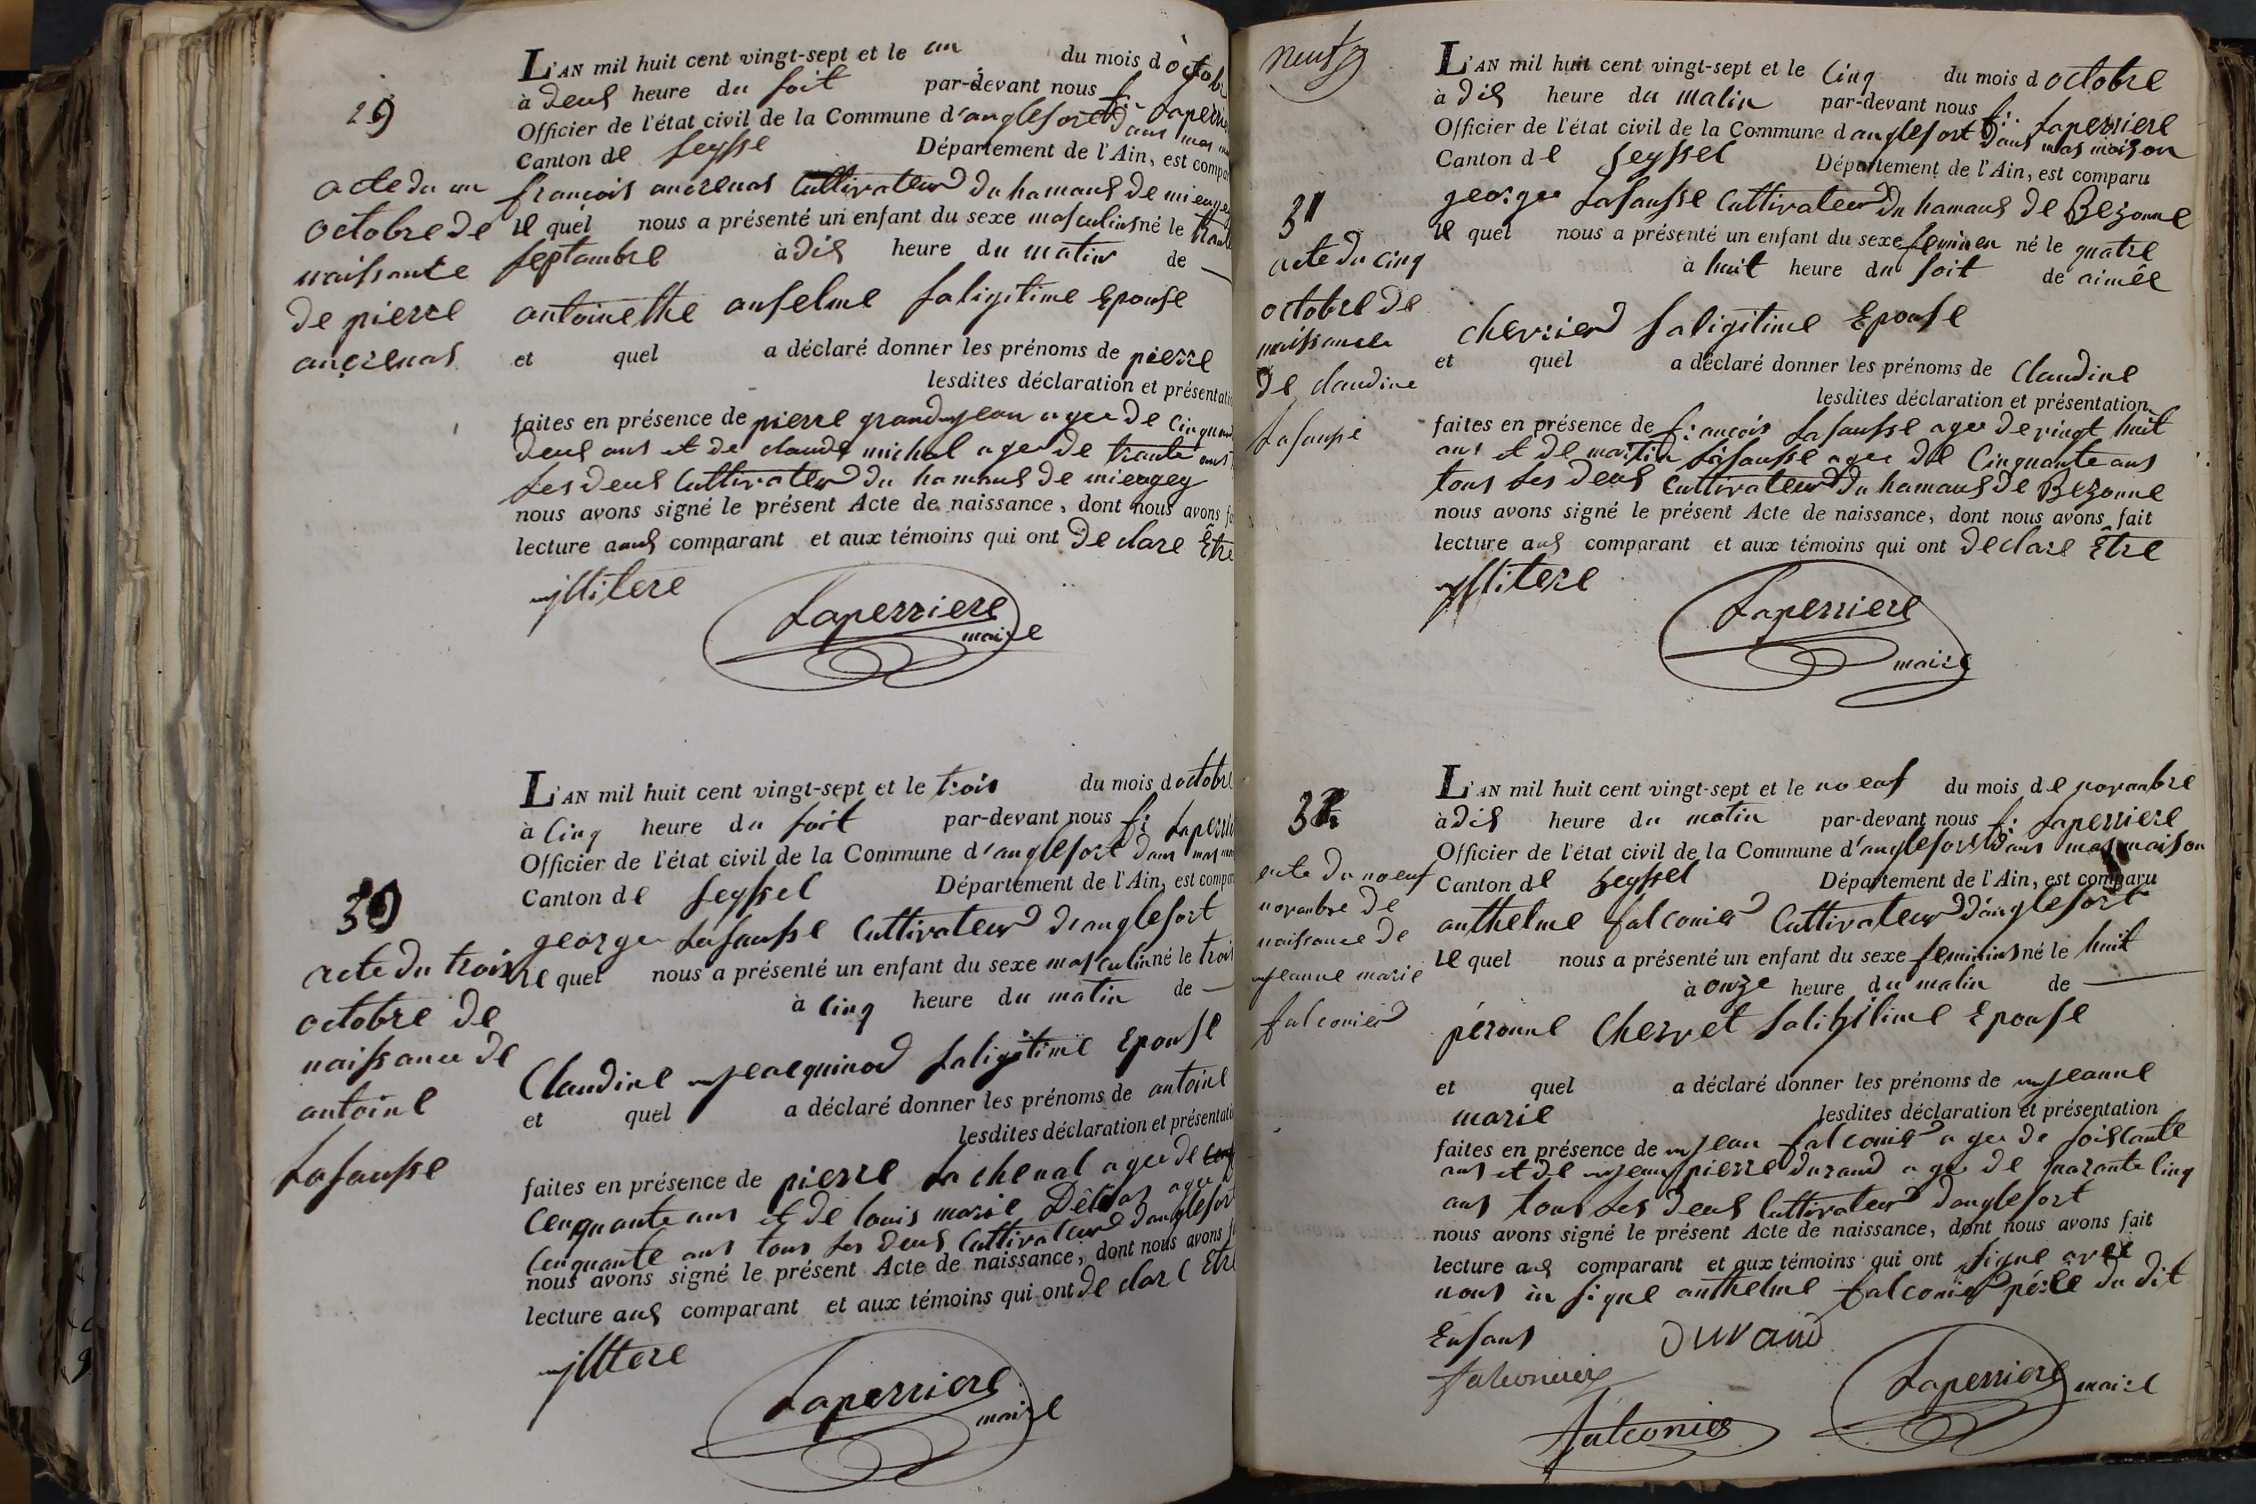 29
acte du un
octobre de
naissance
de pierre
ancrenas
L'AN mil huit cent vingt-sept et le un du mois d octobre
à deux heure du soit par-devant nous f: Laperrie
Officier de l'état civil de la Commune d'anglefort dans mas
Canton de seysse Département de l'Ain, est compa
françois ancrenas Cultivateur du hamaus de mieugey
le quel nous a présenté un enfant du sexe masculins né le trante
septambre à dis heure du matin de
antoinethe anselme saligitime Epouse
et quel a déclaré donner les prénoms de pierre
lesdites déclaration et présentati
faites en présence de pierre grandjean agee de Cinquante
deus ans et de claude michel agee de trante ans
Les deus Cultivateur du hamaus de mieugey
nous avons signé le présent Acte de naissance, dont nous avons f
lecture aus comparant et aux témoins qui ont De clare Être
jllitere
Laperriere
maire
30
acte du trois
octobre de
naissance de
antoine
Lafausse
L'AN mil huit cent vingt-sept et le trois du mois d octobre
à Cinq heure du soit par-devant nous f: Laperrie
Officier de l'état civil de la Commune d'anglefort dans mas
Canton de seyssel Département de l'Ain, est compa
george Lafausse Cultivateur danglefort
le quel nous a présenté un enfant du sexe masculin né le trois
à Cinq heure du matin de
Claudine jeacquinod saligitime Epouse
et quel a déclaré donner les prénoms de antoine
lesdites déclaration et présentati
faites en présence de pierre Lachenal agee de
Cenquante ans et de louis marie agee
Cenquante ans tous Les deus Cultivateur danglefort
nous avons signé le présent Acte de naissance, dont nous avons f
lecture aus comparant et aux témoins qui ont de clare Etre
jlltere
Laperriere
maire
neuf
31
acte du cinq
octobre de
naissance
de claudine
Lafausse
L'AN mil huit cent vingt-sept et le Cinq du mois d octobre
à dis heure du matin par-devant nous f: Laperriere
Officier de l'état civil de la Commune d anglefort dans mas maison
Canton de seyssel Département de l'Ain, est comparu
george Lafausse Cultivateur du hamaus de Bezonne
le quel nous a présenté un enfant du sexe feminen né le quatre
à huit heure du soit de aimée
chevrier saligitime Epouse
et quel a déclaré donner les prénoms de Claudine
lesdites déclaration et présentation
faites en présence de françois Lafausse agee de vingt huit
ans et de martin Lafausse agee de Cinquante ans
tous Les deus Cultivateur du hamaus de Bezonne
nous avons signé le présent Acte de naissance, dont nous avons fait
lecture aus comparant et aux témoins qui ont declare Être
jllitere
Laperriere
maire
32
acte du noeuf
novanbre de
naissance de
jeanne marie
falconier
L'AN mil huit cent vingt-sept et le noeuf du mois de novanbre
à dis heure du matin par-devant nous f: Laperriere
Officier de l'état civil de la Commune d'anglefort dans mas maison
Canton de seyssel Département de l'Ain, est comparu
anthelme falconier Cultivateur danglefort
le quel nous a présenté un enfant du sexe feminins né le huit
à onze heure du matin de
péronne Chervet saligitime Epouse
et quel a déclaré donner les prénoms de jeanne
marie lesdites déclaration et présentation
faites en présence de jean falconier agee de soissante
ans et de jean pierre durand agee de quarante Cinq
ans tous Les deus Cultivateur danglefort
nous avons signé le présent Acte de naissance, dont nous avons fait
lecture aus comparant et aux témoins qui ont signe avec
nous in signe anthelme falconier pére du dit
Enfans
Durand
falconier
falconier
Laperriere maire